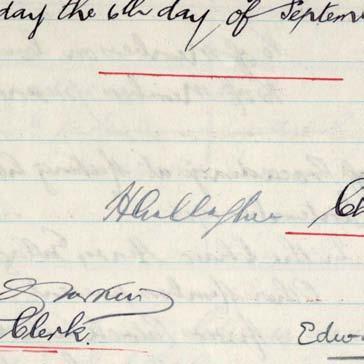 day the 6th day of Septem
H Gallagher
Clerk.
Edw